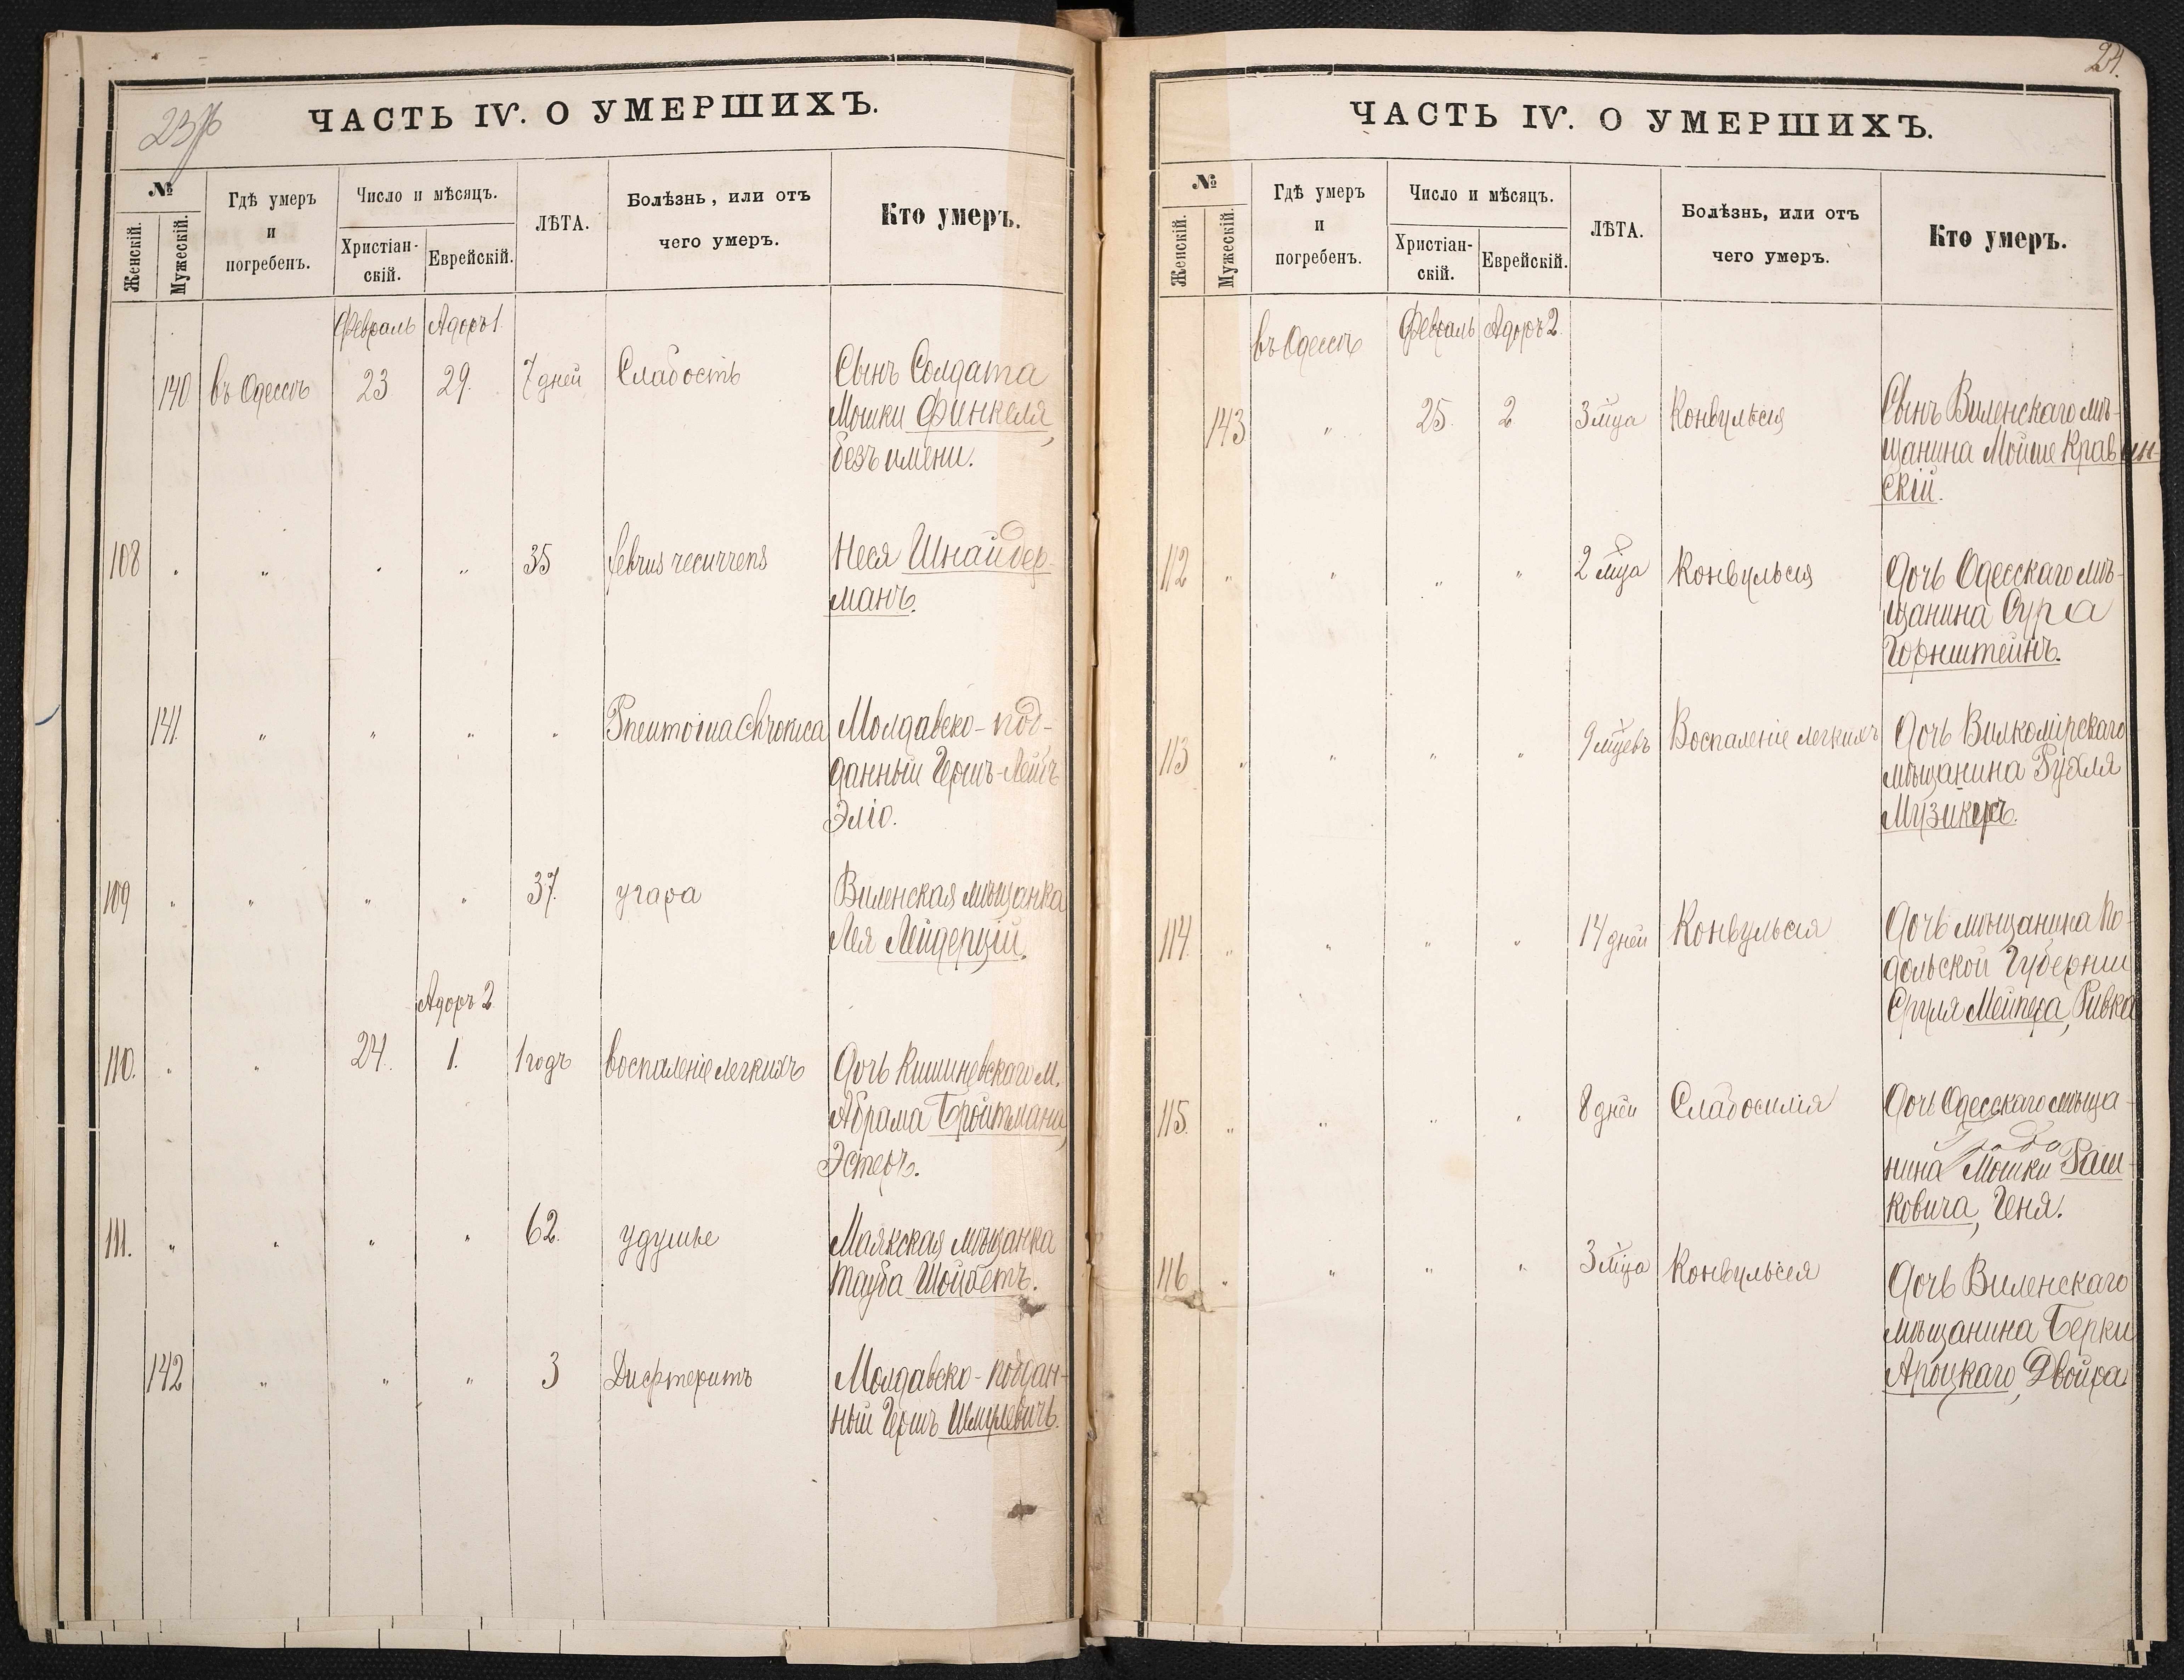 23
ЧАСТЬ IV. О УМЕРШИХЪ.
№
Женскій.
Мужескій.
Гдѣ умеръ
и
погребенъ.
Число и мѣсяцъ.
Христіан-
скій.
Еврейскій.
ЛѢТА.
Болѣзнь, или отъ
чего умеръ.
Кто умеръ.
Февраль Адоръ 1.
140 въ Одессѣ 23 29. 7 дней Слабость Сынъ Солдата
Мошки Финкеля,
безъ имени.
108 " " " " 35 februs recurrens Неся Шнайдер-
манъ.
141. " " " " Pneumonia chronica Молдавско-под-
данный Гершъ-Лейбъ
Эліо.
109 " " " " 37. угара Виленская мѣщанка
Лея Лейдерцій.
Адоръ 2
110. " " 24. 1. 1 годъ воспаленіе легкихъ Дочь Кишиневскаго м.
Абрама Бройтмана,
Эстеръ.
111. " " " " 62. удушье Маякская мѣщанка
Тауба Шойбетъ.
142 " " " 3 Дифтеритъ Молдавско-поддан-
ный Гершъ Шмулевичъ.
24.
ЧАСТЬ IV. О УМЕРШИХЪ.
№
Женскій.
Мужескій.
Гдѣ умеръ
и
погребенъ.
Число и мѣсяцъ.
Христіан-
скій.
Еврейскій.
ЛѢТА.
Болѣзнь, или отъ
чего умеръ.
Кто умеръ.
въ Одессѣ Февраль Адоръ 2.
143 " 25. 2 3 мца Конвульсія Сынъ Виленскаго мѣ-
щанина Мойше Кравчин-
скій.
112 " " " " 2 мца Конвульсія Дочь Одесскаго мѣ-
щанина Сура
Горнштейнъ.
113 " " " " 9 мцевъ Воспаленіе легкихъ Дочь Вилкомірскаго
мѣщанина Рубля
Музикеръ.
114. " " " " 14 дней Конвульсія Дочь мѣщанина По-
дольской Губерніи
Сруля Мейпера, Ривка
115. " " " " 8 дней Слабосилія Дочь Одесскаго мѣща-
нина Мошки Раш-
ковича, Геня.
116 " " " " 3 мца Конвульсія Дочь Виленскаго
мѣщанина Берки
Ароцкаго, Двойра